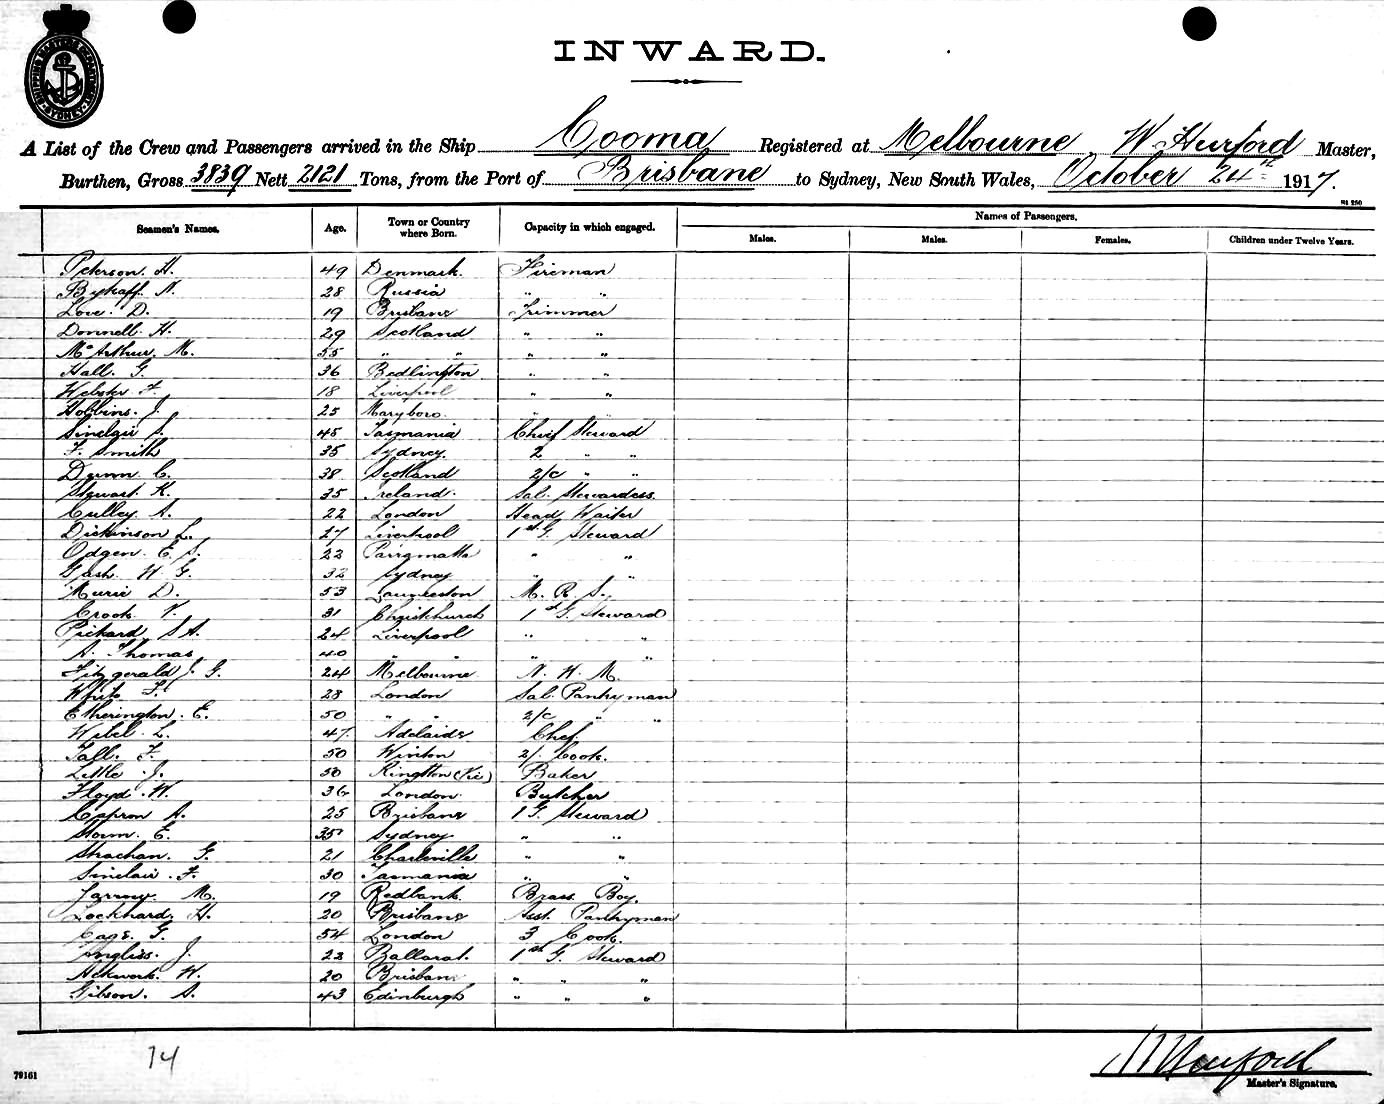 SHIPPING MASTER'S DEPARTMENT SYDNEY
INWARD.
A List of the Crew and Passengers arrived in the Ship Cooma Registered at Melbourne, W. Hurford Master,
Burthen, Gross 3839 Nett 2121 Tons, from the Port of Brisbane to Sydney, New South Wales, October 24th 1917.
Seamen's Names. Age. Town or Country where Born. Capacity in which engaged. Names of Passengers.
Males. Males. Females. Children under Twelve Years.
Peterson. H. 49 Denmark. Fireman
Bykoff. N. 28 Russia " "
Love. D. 19 Brisbane Trimmer
Donnell. H. 29 Scotland " "
McArthur. M. 55 " " " "
Hall. G. 36 Bedlington " "
Webster F. 18 Liverpool " "
Hobbins. J. 25 Maryboro. " "
Sinclair J. 45 Tasmania Chief Steward
F. Smith 35 Sydney. 2 " "
Dunn C. 38 Scotland 2/c " "
Stewart K. 35 Ireland. Sal. Stewardess.
Culley. A. 22 London Head Waiter
Dickinson L. 27 Liverpool 1st G. Steward
Odgen. E. S. 22 Parramatta " "
Gash. H. G. 32 Sydney " "
Murie D. 53 Launceston M. R. S.
Crook. V. 31 Christchurch 1st G. Steward
Pickard, S A. 24 Liverpool " "
A. Thomas 40 " " " "
Fitzgerald J. G. 24 Melbourne N. H. M.
White F. 28 London Sal. Pantryman
Etherington. E. 50 " " 2/c " "
Wibel. L. 47. Adelaide Chef.
Tall. F. 50 Winton 2/. Cook.
Little J. 50 (Vic) Baker
Floyd. W. 36 London Butcher
Capron A. 25 Brisbane 1 G. Steward
Storm. E. 35 Sydney " "
Strachan. G. 21 Charleville " "
Sinclair. F. 30 Tasmania " "
M. 19 Redbank. Brass Boy.
Lockhard. H. 20 Brisbane Asst. Pantryman
Cage. G. 54 London 3 Cook.
Angliss. J. 22 Ballarat. 1st G. Steward
W. 20 Brisbane " " "
Gibson. A. 43 Edinburgh " " "
14
79161
W Hurford
Master's Signature.